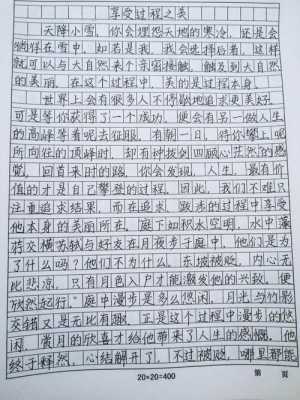 享受过程之美
天降小雪，你会埋怨天地的寒冷，还是会
徜徉在雪中，如若是我，我会选择后者，这样
就可以与大自然来个亲密接触，触及到大自然
的美丽。在这个过程中，美的是过程本身。
世界上会有很多人不停歇地追求更美好，
可是等你获得了一个成功，便会有另一做人生
的高峰等着呢去征服，有朝一日，待你攀上呢
所向往的顶峰时，却有种拔剑四顾心茫然的感
觉，回首来时的路，你会发现，人生，最有价
值的才是自己攀登的过程。因此，我们不难只
注重追求结果，而在追求、跋涉的过程中享受
他本身的美丽所在。庭下如积水空明，水中藻
荇交横苏轼与好友在月夜步于庭中，他们是为
了什么吗？他们不为什么。东坡被贬，内心无
比悲凉，只有月色入户才能激发他的兴致，便
“欣然起行。”庭中漫步是多么悠闲，月光与竹影
交错又是无比有趣。正是这个过程中漫步的悠
闲，赏月的欣喜才给他带来了人生的感慨。他
终于释然，心结解开了，不过被贬，哪里都能
20×20=400
第 页